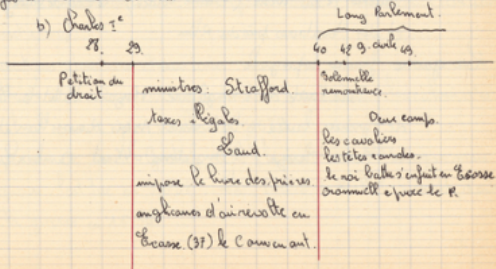 Long Parlement.
b) Charles Ier
28. 29. 40 42 g. civile 49.
Pétition du
droit
ministres. Strafford.
taxes illégales.
Laud.
impose le livre des prières
anglicanes d'où révolte en
Ecosse. (37) le Covenant.
Solennelle
remontrance.
Deux camps.
les cavaliers
les têtes rondes.
le roi battu s'enfuit en Ecosse
cromwell épure le P.